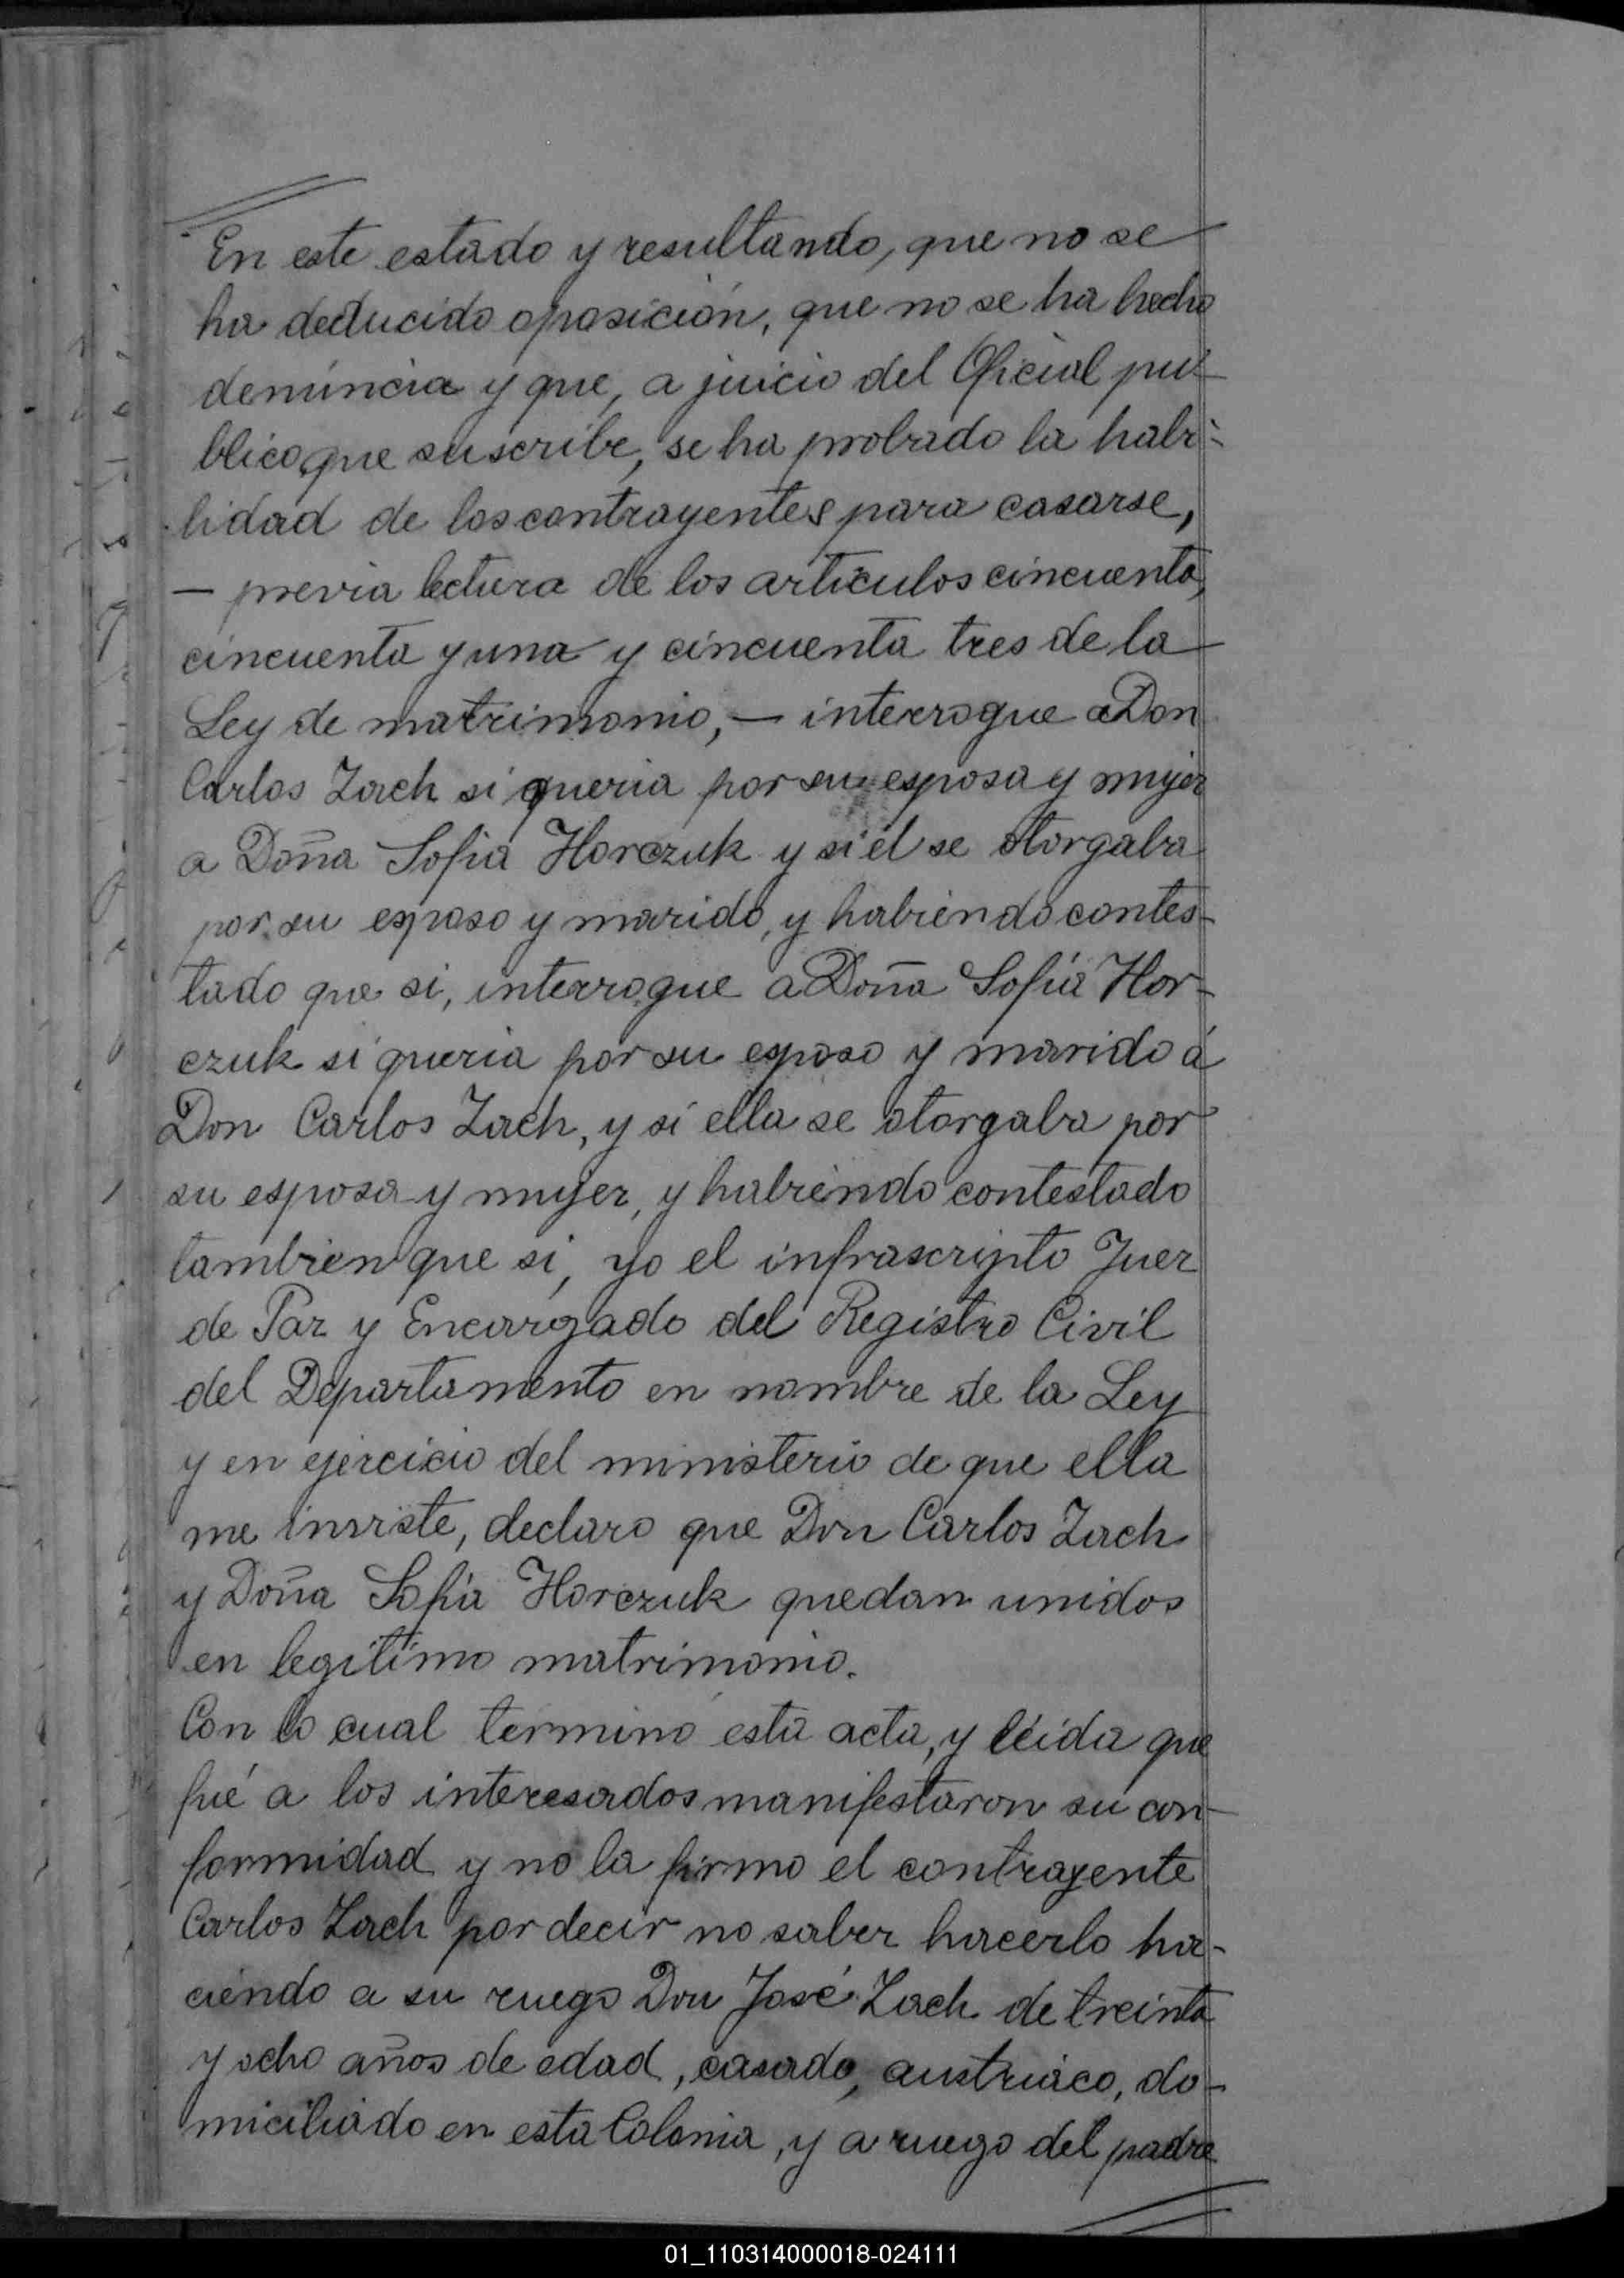 En este estado y resultando, que no se
ha deducido oposición, que no se ha hecho
denúncia y que, a juicio del Oficial pú-
blico que suscribe, se ha probado la habi-
lidad de los contrayentes para casarse,
— previa lectura de los articulos cincuenta,
cincuenta y una y cincuenta tres de la
Ley de matrimonio, — interrogue a Don
Carlos Zach si queria por su esposa y mujer
a Doña Sofia Horczuk y si él se otorgaba
por su esposo y marido, y habiendo contes-
tado que si, interrogue a Doña Sofia Hor-
czuk si queria por su esposo y marido á
Don Carlos Zach, y si ella se otorgaba por
su esposa y mujer, y habiendo contestado
tambien que si, yo el infrascripto Juez
de Paz y Encargado del Registro Civil
del Departamento en nombre de la Ley
y en ejercicio del ministerio de que ella
me inviste, declaro que Don Carlos Zach
y Doña Sofia Horczuk quedan unidos
en legitimo matrimonio.
Con lo cual termino esta acta, y leida que
fué a los interesados manifestaron su con-
formidad y no la firmo el contrayente
Carlos Zach por decir no saber hacerlo ha-
ciendo a su ruego Don José Zach de treinta
y ocho años de edad, casado, austriaco, do-
miciliado en esta Colonia, y a ruego del padre
01_110314000018-024111